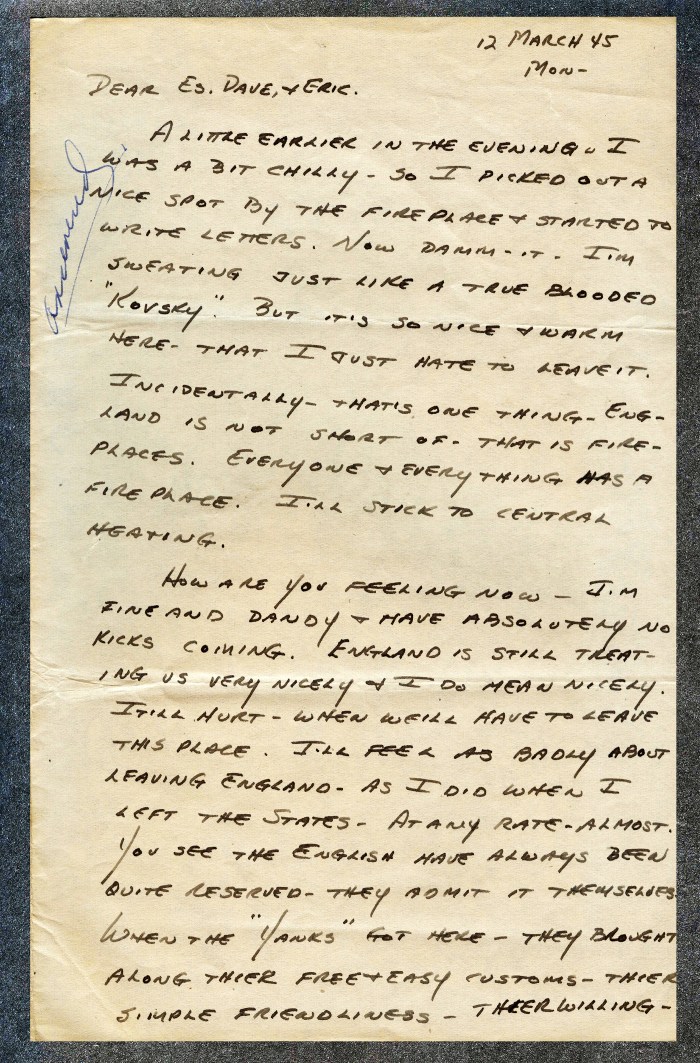 12 MARCH 45
MON-
DEAR ES. DAVE, & ERIC.
A LITTLE EARLIER IN THE EVENING. I
WAS A BIT CHILLY - SO I PICKED OUT A
NICE SPOT BY THE FIREPLACE & STARTED TO
WRITE LETTERS. NOW DAMM-IT - I'M
SWEATING JUST LIKE A TRUE BLOODED
"KOVSKY". BUT IT'S SO NICE & WARM
HERE - THAT I JUST HATE TO LEAVE IT.
INCIDENTALLY - THAT'S ONE THING - ENG-
LAND IS NOT SHORT OF - THAT IS FIRE-
PLACES. EVERYONE & EVERYTHING HAS A
FIREPLACE. I'LL STICK TO CENTRAL
HEATING.
HOW ARE YOU FEELING NOW - I'M
FINE AND DANDY & HAVE ABSOLUTELY NO
KICKS COMING. ENGLAND IS STILL TREAT-
ING US VERY NICELY & I DO MEAN NICELY.
IT'LL HURT - WHEN WE'LL HAVE TO LEAVE
THIS PLACE. I'LL FEEL AS BADLY ABOUT
LEAVING ENGLAND - AS I DID WHEN I
LEFT THE STATES - AT ANY RATE - ALMOST.
YOU SEE THE ENGLISH HAVE ALWAYS BEEN
QUITE RESERVED - THEY ADMIT IT THEMSELVES
WHEN THE "YANKS" GOT HERE - THEY BROUGHT
ALONG THIER FREE & EASY CUSTOMS - THIER
SIMPLE FRIENDLINESS - THIER WILLING-